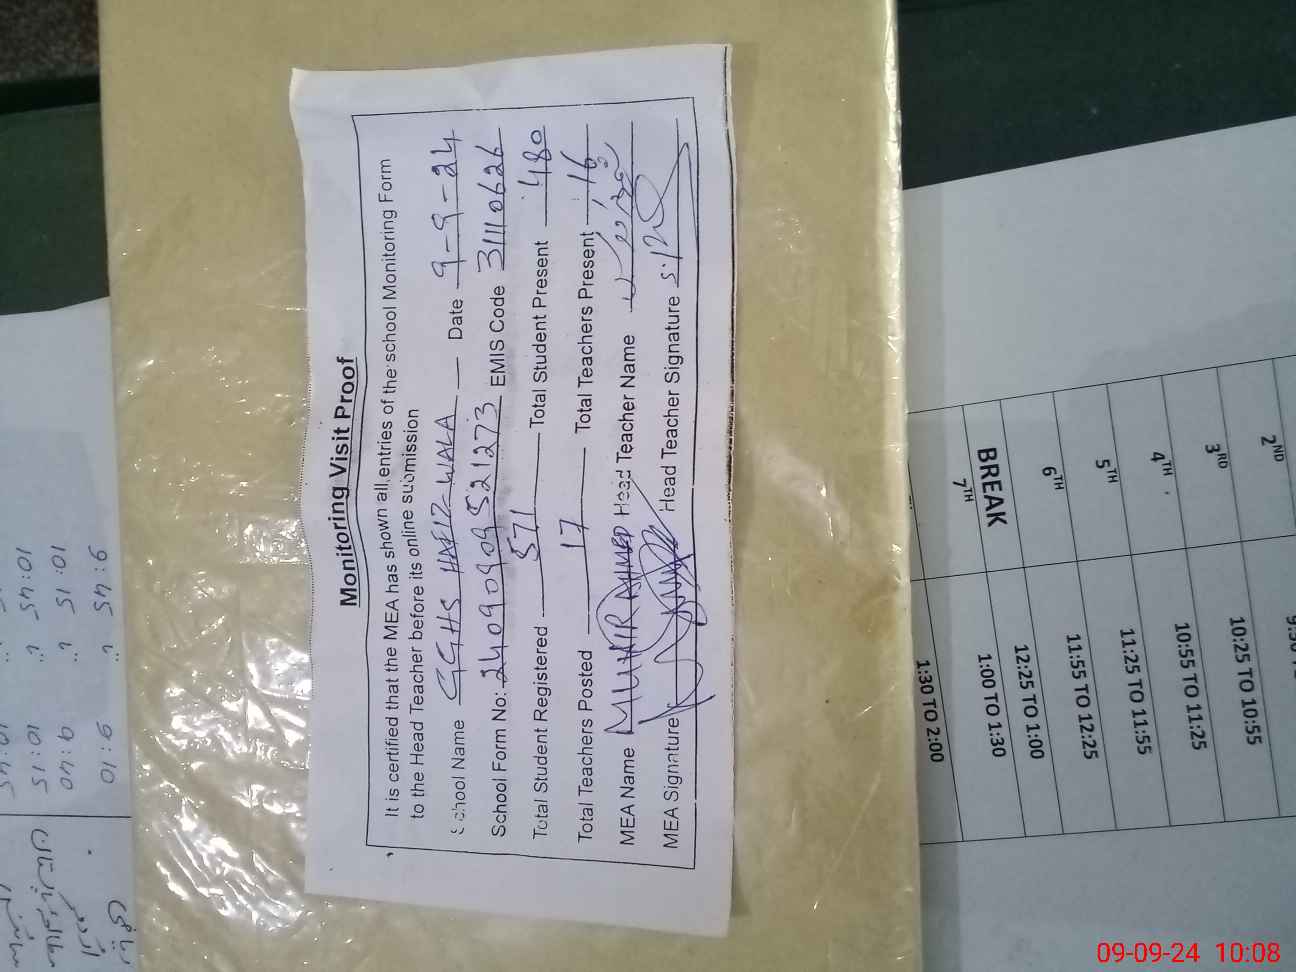 Monitoring Visit Proof
It is certified that the MEA has shown all entries of the school Monitoring Form
to the Head Teacher before its online submission
School Name GGHS HAFIZ WALA Date 9-9-24
School Form No: 24090909521273 EMIS Code 31110626
Total Student Registered 571 Total Student Present 480
Total Teachers Posted 17 Total Teachers Present 16
MEA Name MUNIR AHMED Head Teacher Name
MEA Signature Head Teacher Signature
2ND 10:25 TO 10:55
3RD 10:55 TO 11:25
4TH 11:25 TO 11:55
5TH 11:55 TO 12:25
6TH 12:25 TO 1:00
BREAK 1:00 TO 1:30
7TH 1:30 TO 2:00
9:10 تا 9:45 ریاضی
9:40 تا 10:15 اردو
10:15 تا 10:45 مطالعہ پاکستان
10:45
09-09-24 10:08